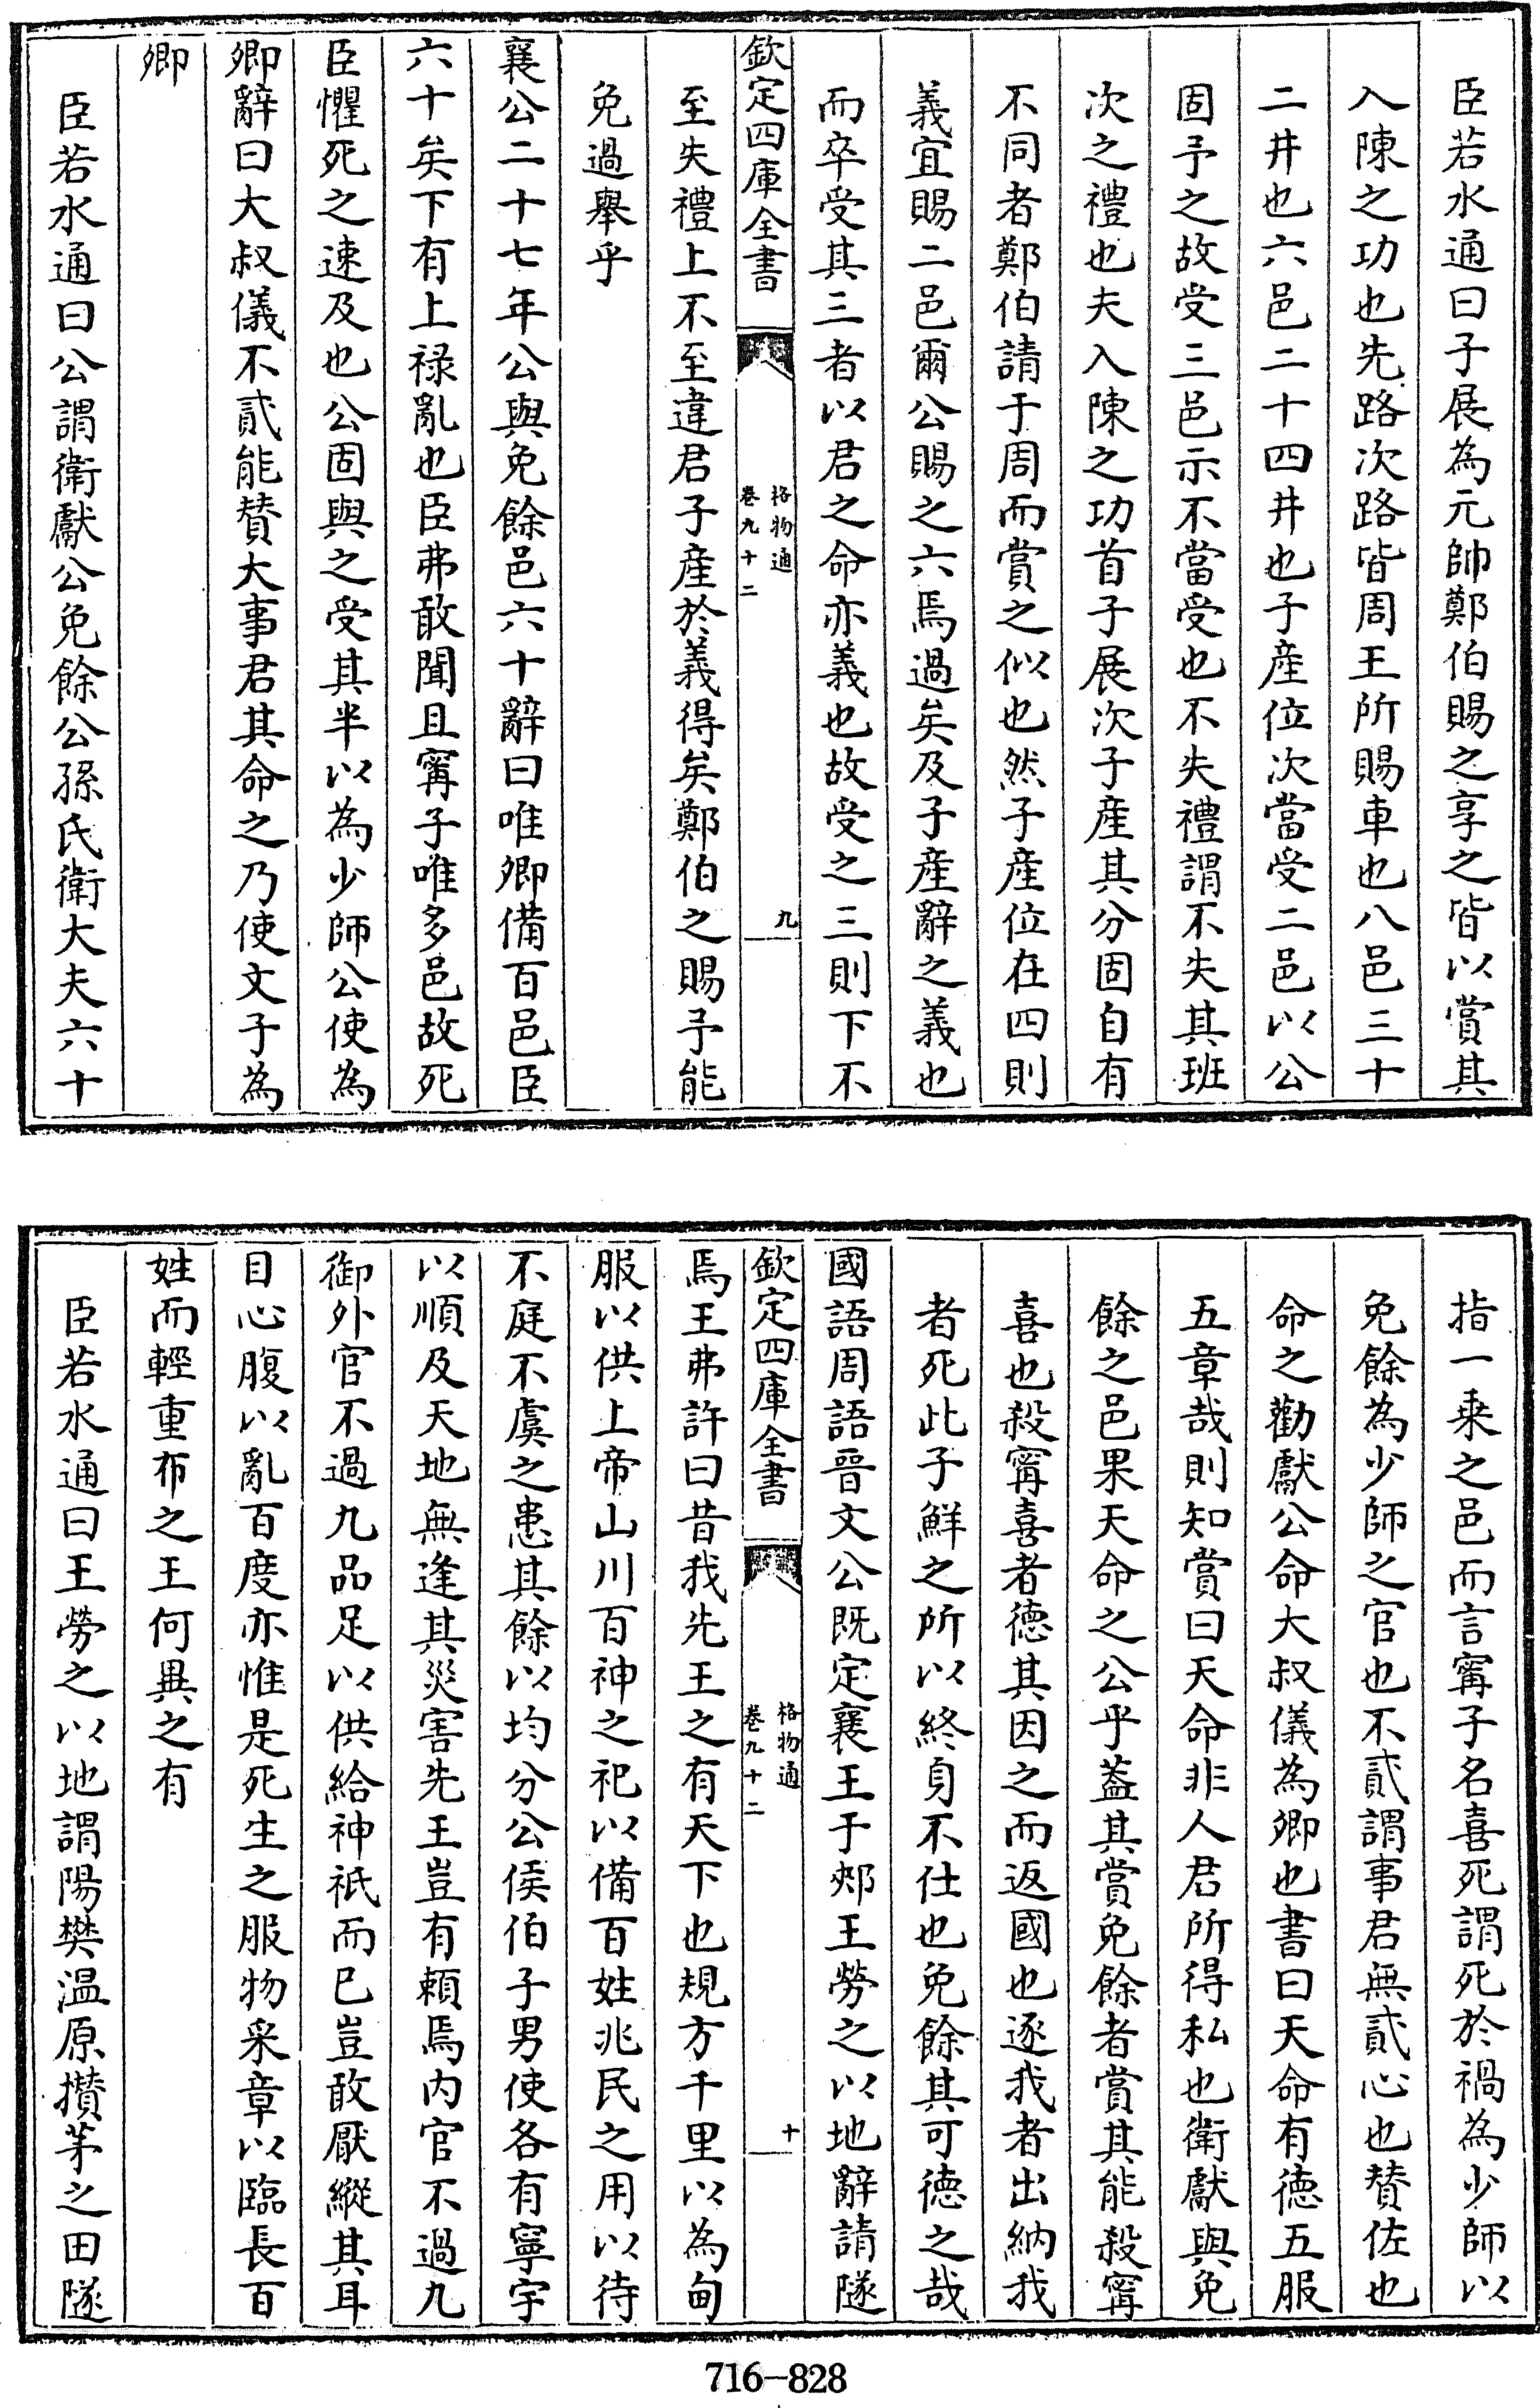 臣若水通曰子展為元帥鄭伯賜之享之皆以賞其
入陳之功也先路次路皆周王所賜車也八邑三十
二井也六邑二十四井也子產位次當受二邑以公
固予之故受三邑示不當受也不失禮謂不失其班
次之禮也夫入陳之功首子展次子產其分固自有
不同者鄭伯請于周而賞之似也然子產位在四則
義宜賜二邑爾公賜之六焉過矣及子產辭之義也
而卒受其三者以君之命亦義也故受之三則下不
欽定四庫全書
格物通
卷九十二
九
至失禮上不至違君子產於義得矣鄭伯之賜予能
免過舉乎
襄公二十七年公與免餘邑六十辭曰唯卿備百邑臣
六十矣下有上祿亂也臣弗敢聞且寗子唯多邑故死
臣懼死之速及也公固與之受其半以為少師公使為
卿辭曰大叔儀不貳能贊大事君其命之乃使文子為
卿
臣若水通曰公謂衛獻公免餘公孫氏衛大夫六十
指一乘之邑而言寗子名喜死謂死於禍為少師以
免餘為少師之官也不貳謂事君無貳心也贊佐也
命之勸獻公命大叔儀為卿也書曰天命有德五服
五章哉則知賞曰天命非人君所得私也衛獻與免
餘之邑果天命之公乎葢其賞免餘者賞其能殺寗
喜也殺寗喜者德其因之而返國也逐我者出納我
者死此子鮮之所以終身不仕也免餘其可德之哉
國語周語晉文公既定襄王于郟王勞之以地辭請隧
欽定四庫全書
格物通
卷九十二
十
焉王弗許曰昔我先王之有天下也規方千里以為甸
服以供上帝山川百神之祀以備百姓兆民之用以待
不庭不虞之患其餘以均分公侯伯子男使各有寧宇
以順及天地無逢其災害先王豈有頼焉内官不過九
御外官不過九品足以供給神祇而已豈敢厭縱其耳
目心腹以亂百度亦惟是死生之服物采章以臨長百
姓而輕重布之王何異之有
臣若水通曰王勞之以地謂陽樊温原攢茅之田隧
716-828